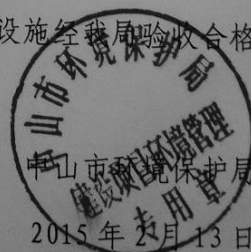 设施经我局验收合格
中山市环境保护局
建设项目环境管理
专用章
中山市环境保护局
2015年2月13日